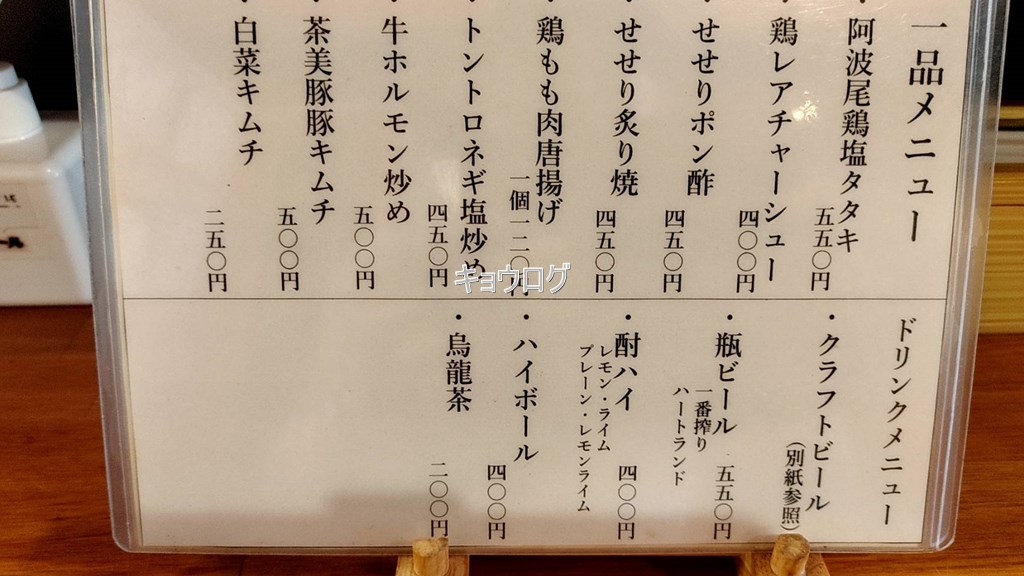 一品メニュー
・阿波尾鶏塩タタキ
五五〇円
・鶏レアチャーシュー
四〇〇円
・せせりポン酢
四五〇円
・せせり炙り焼
四五〇円
・鶏もも肉唐揚げ
一個一二〇円
・トントロネギ塩炒め
四五〇円
・牛ホルモン炒め
五〇〇円
・茶美豚豚キムチ
五〇〇円
・白菜キムチ
二五〇円
ドリンクメニュー
・クラフトビール
(別紙参照)
・瓶ビール
一番搾り
ハートランド
五五〇円
・酎ハイ
レモン・ライム
プレーン・レモンライム
四〇〇円
・ハイボール
四〇〇円
・烏龍茶
二〇〇円
キョウログ